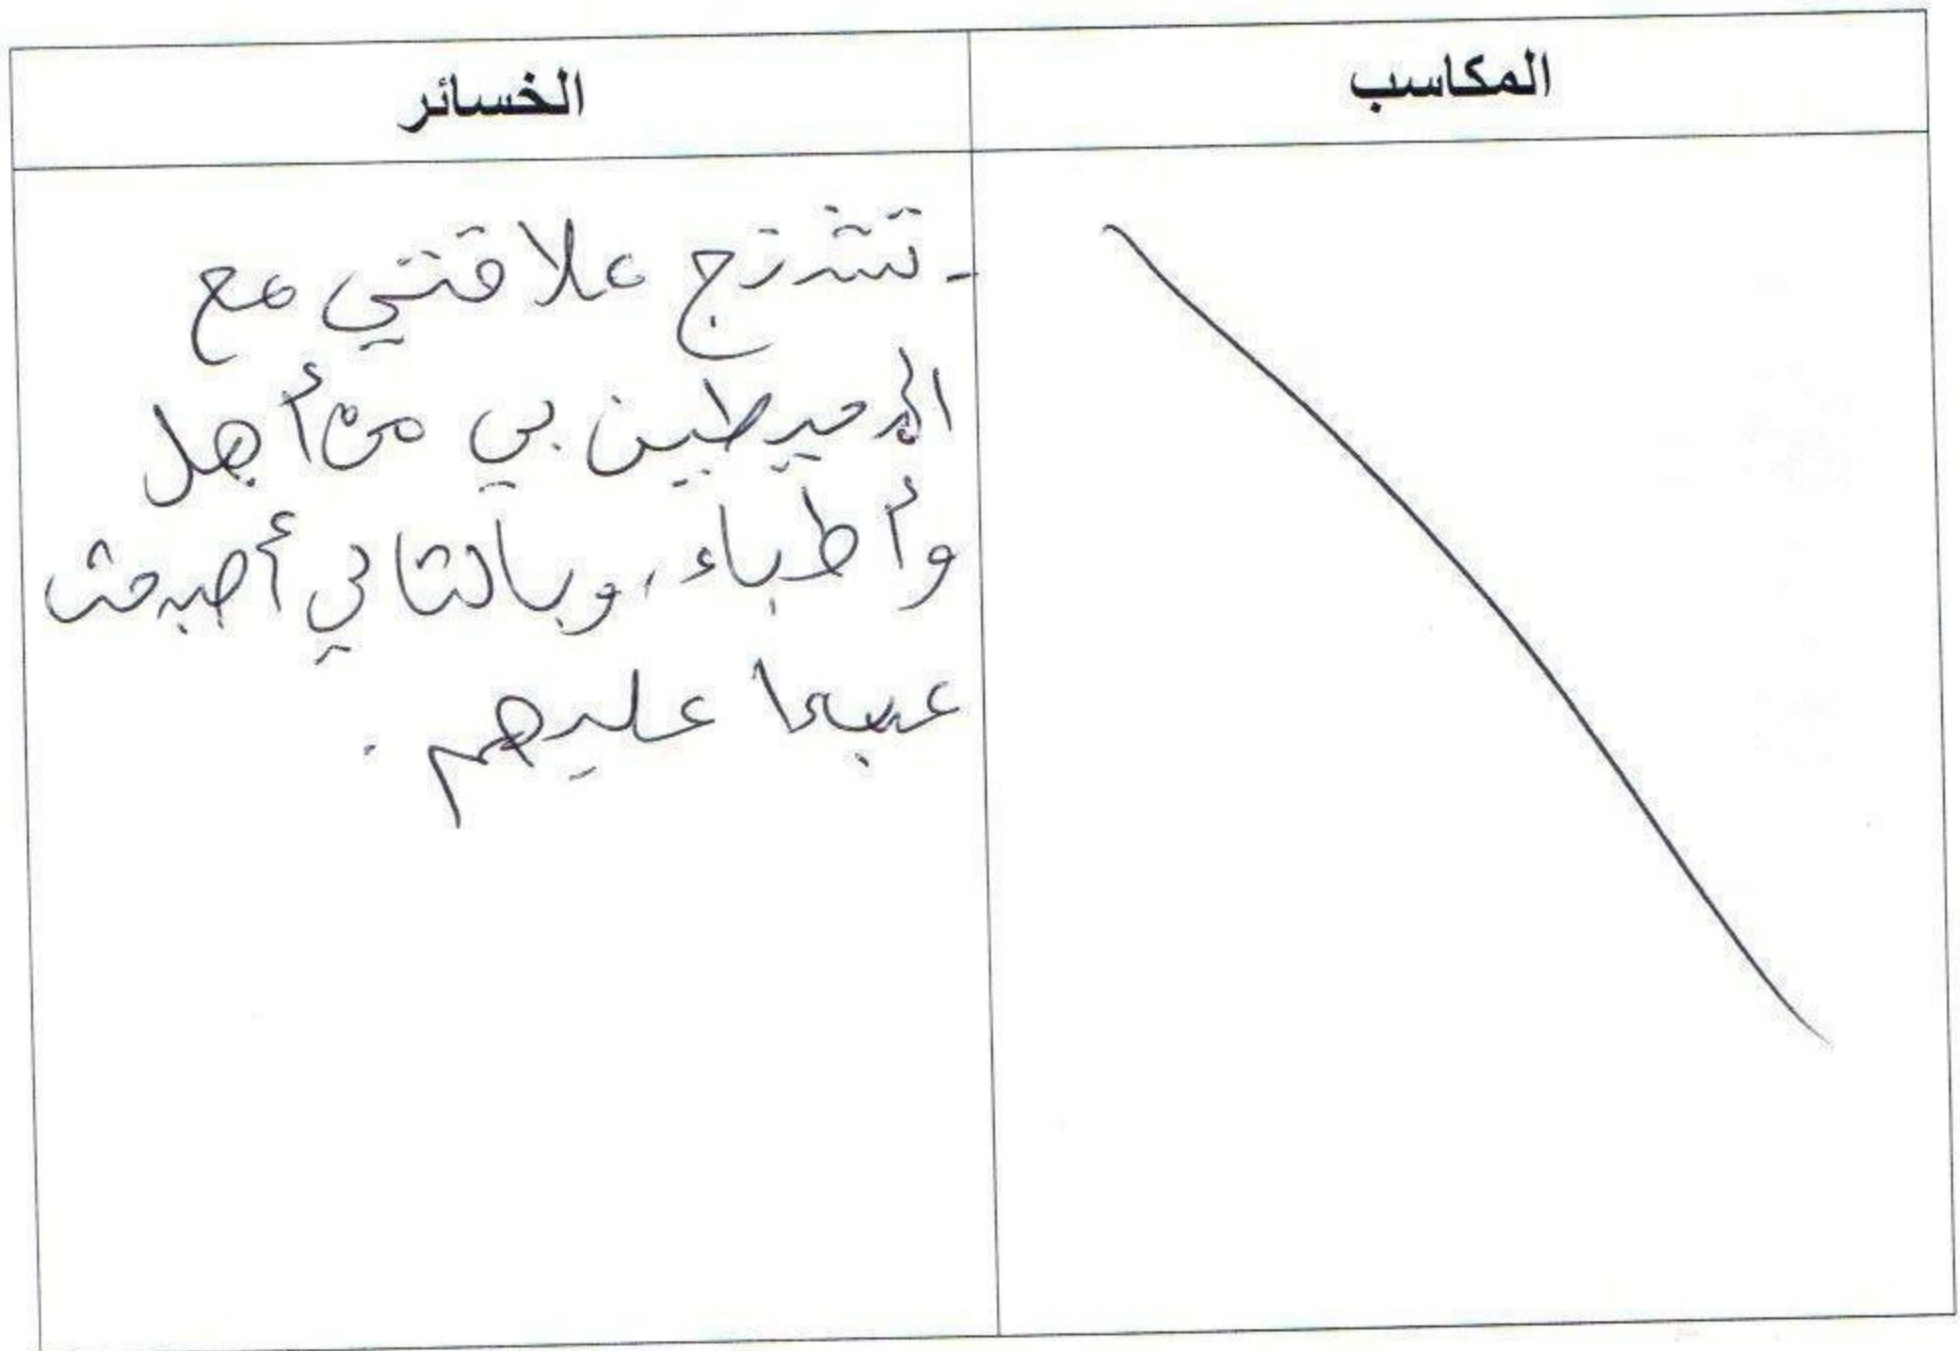 المكاسب
الخسائر
- تشنج علاقتي مع
المحيطين بي من أهل
وأطباء، وبالتالي أصبحت
عبءا عليهم.